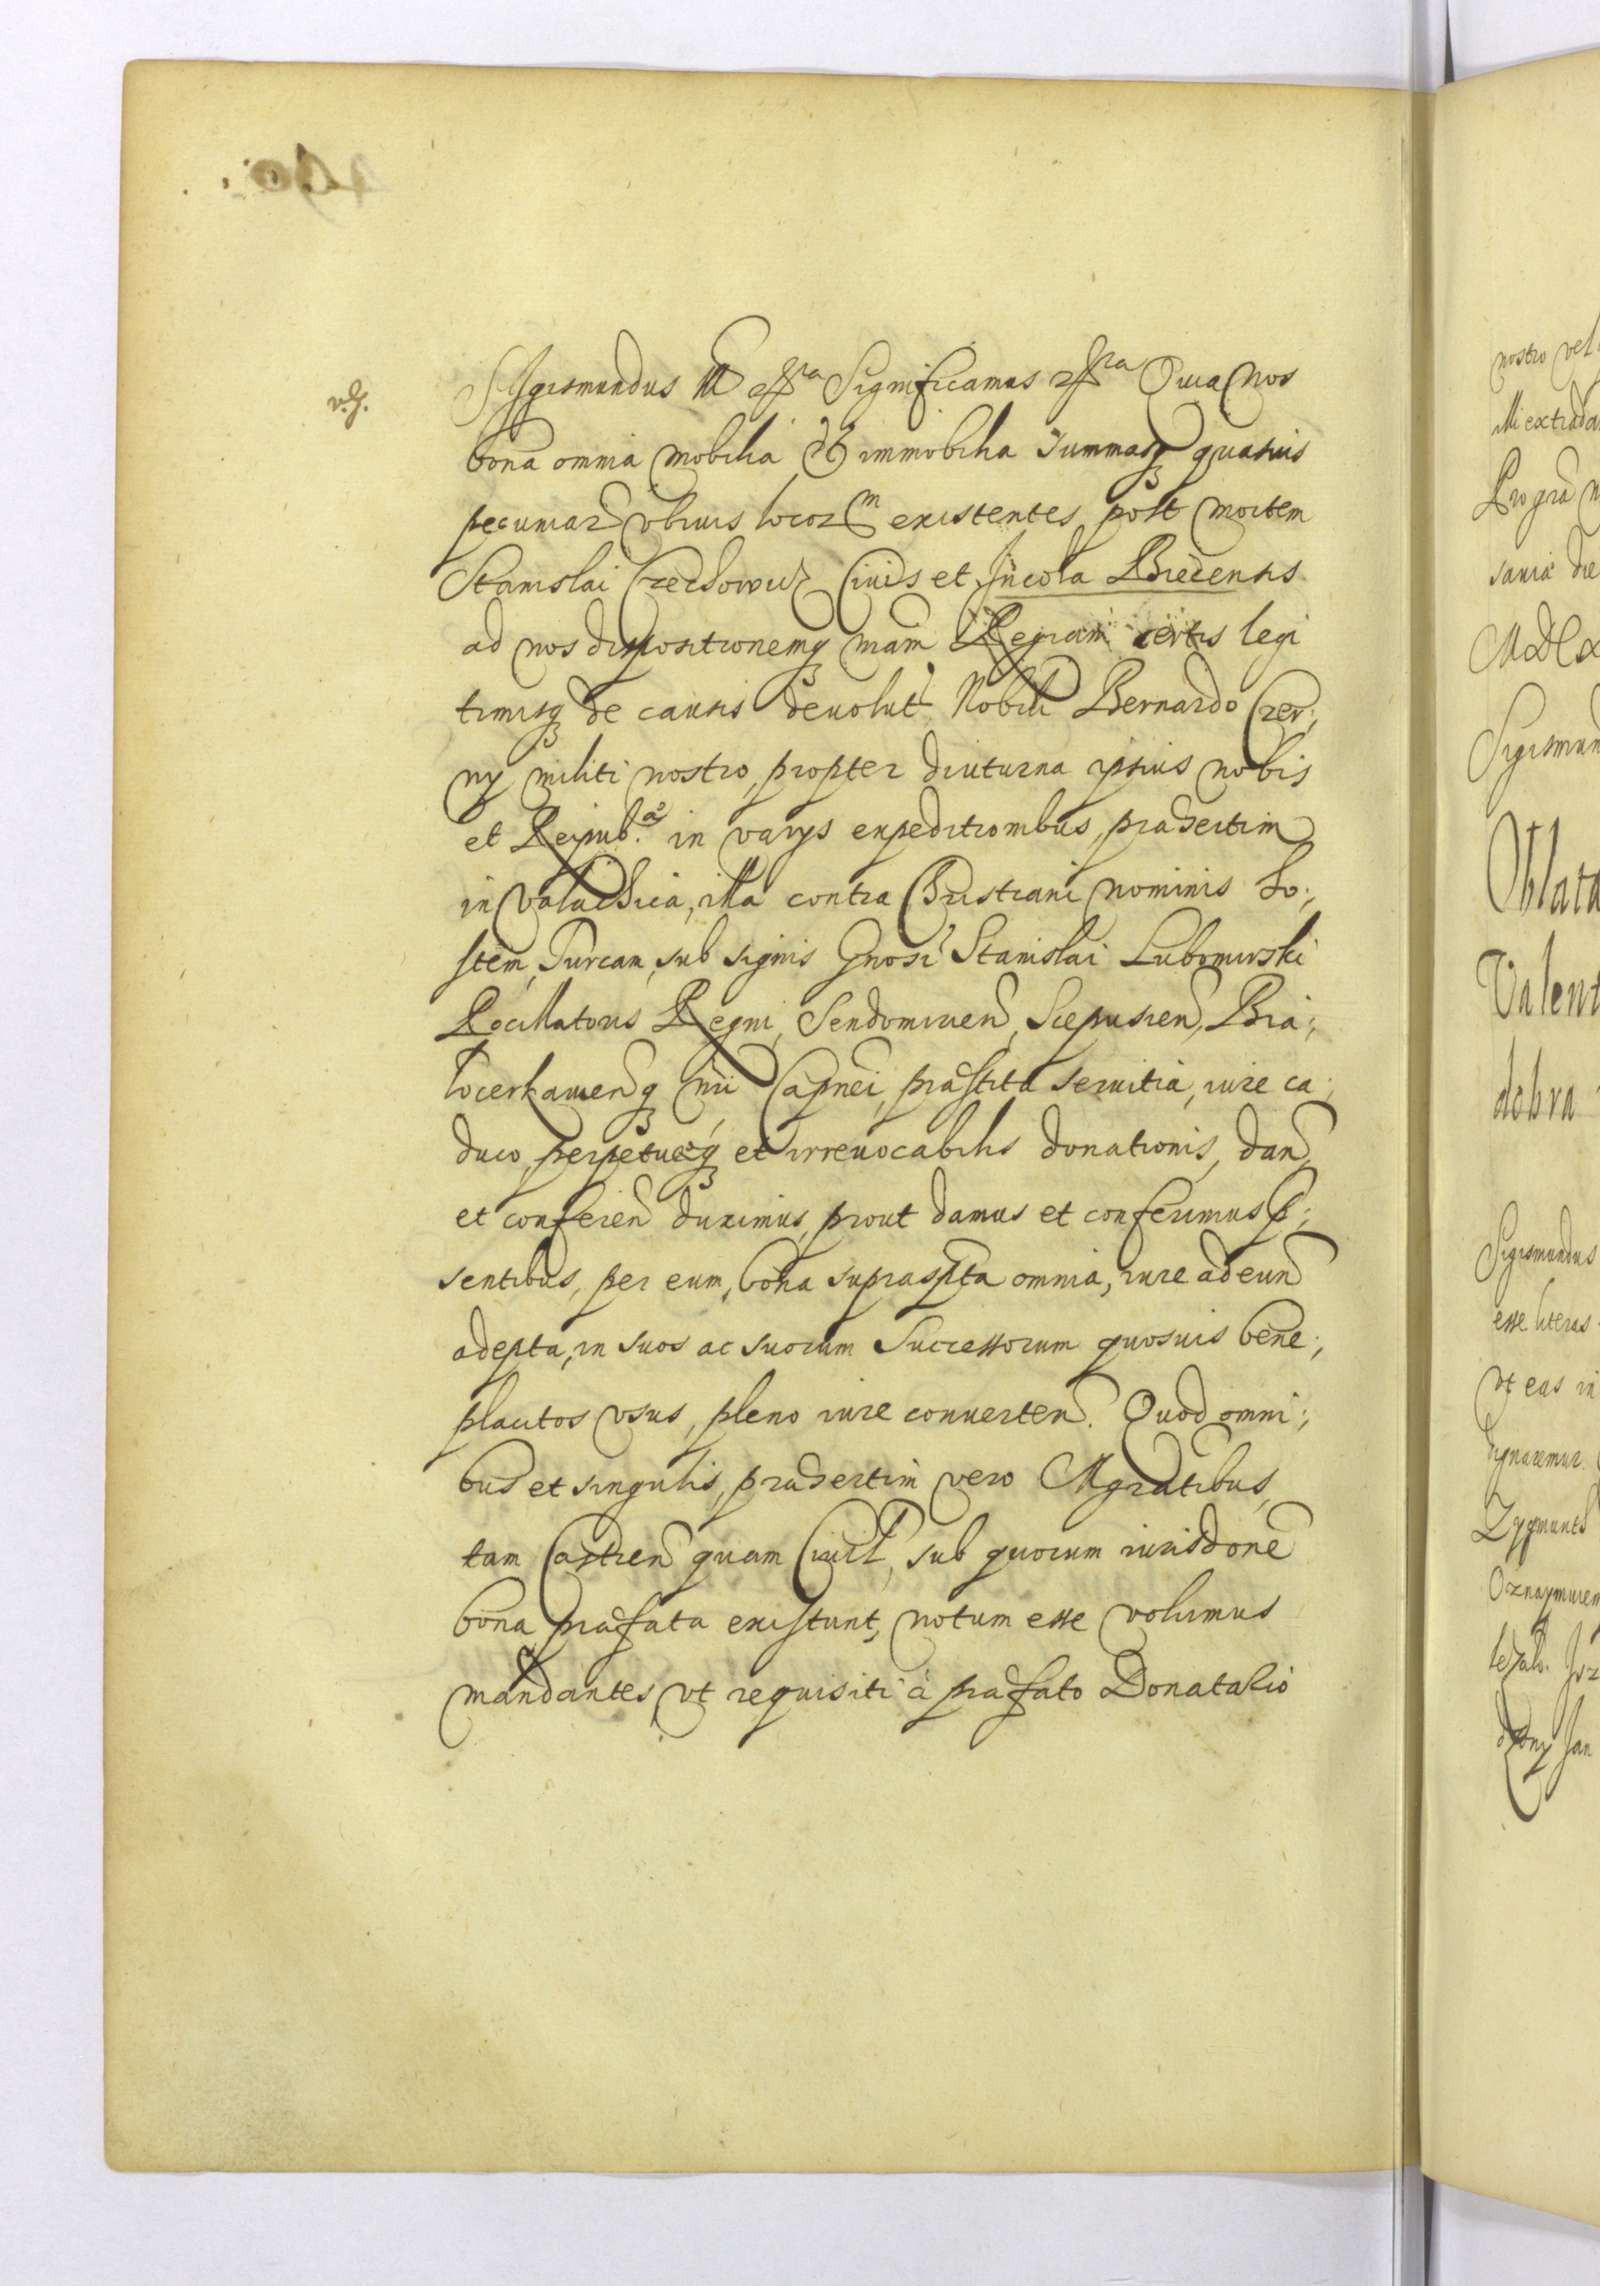 v. g.
Sigismundus III etc̃ra Significamus etc̃ra Quia Nos
bona omnia mobilia et immobilia summasq quasuis
pecuniar̃ vbiuis locor̃m existentes post mortem
Stanislai Czechowicz Ciuis et Incola Biecensis
ad nos dispositionemq̃ nr̃am Regiam certis legi
timisq̃ de causis deuolut̃ Nobili Bernardo Czer:
ny militi nostro, propter diuturna ipsius nobis
et Reipub.ae in varys expeditionibus, praesertim
in Valachia, illa contra Christiani nominis ho:
stem, Turcam, sub signis Gnosi Stanislai Lubomirski
Pocillatoris Regni, Sendomirien̄, Scepusien̄, Bia:
locerkauien̄q nr̃i Capnei, praestita seruitia, iure ca:
duco, perpetuaeq et irreuocabilis donationis, dan̄,
et conferen̄ duximus, prout damus et conferimus p̄:
sentibus, per eum, bona suprasp̃ta omnia, iure ad eun̄
adepta, in suos ac suorum Successorum quosuis bene:
placitos vsus, pleno iure conuerten̄. Quod omni:
bus et singulis, praesertim vero Mgratibus,
tam Castren̄ quam Ciuil̃, sub quorum iurisdõne
bona praefata existunt, notum esse volumus
mandantes, vt requisiti à praefato Donatario
nostro vel
illi extrada
Sigismun
Oblata
Valent
dobra
Sigismundus
esse literas
vt eas in
dignaremur.
Zygmunt
Oznaymuiem